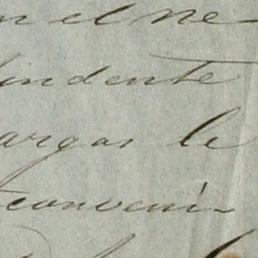 n el ne-
indente
argas le
conveni-